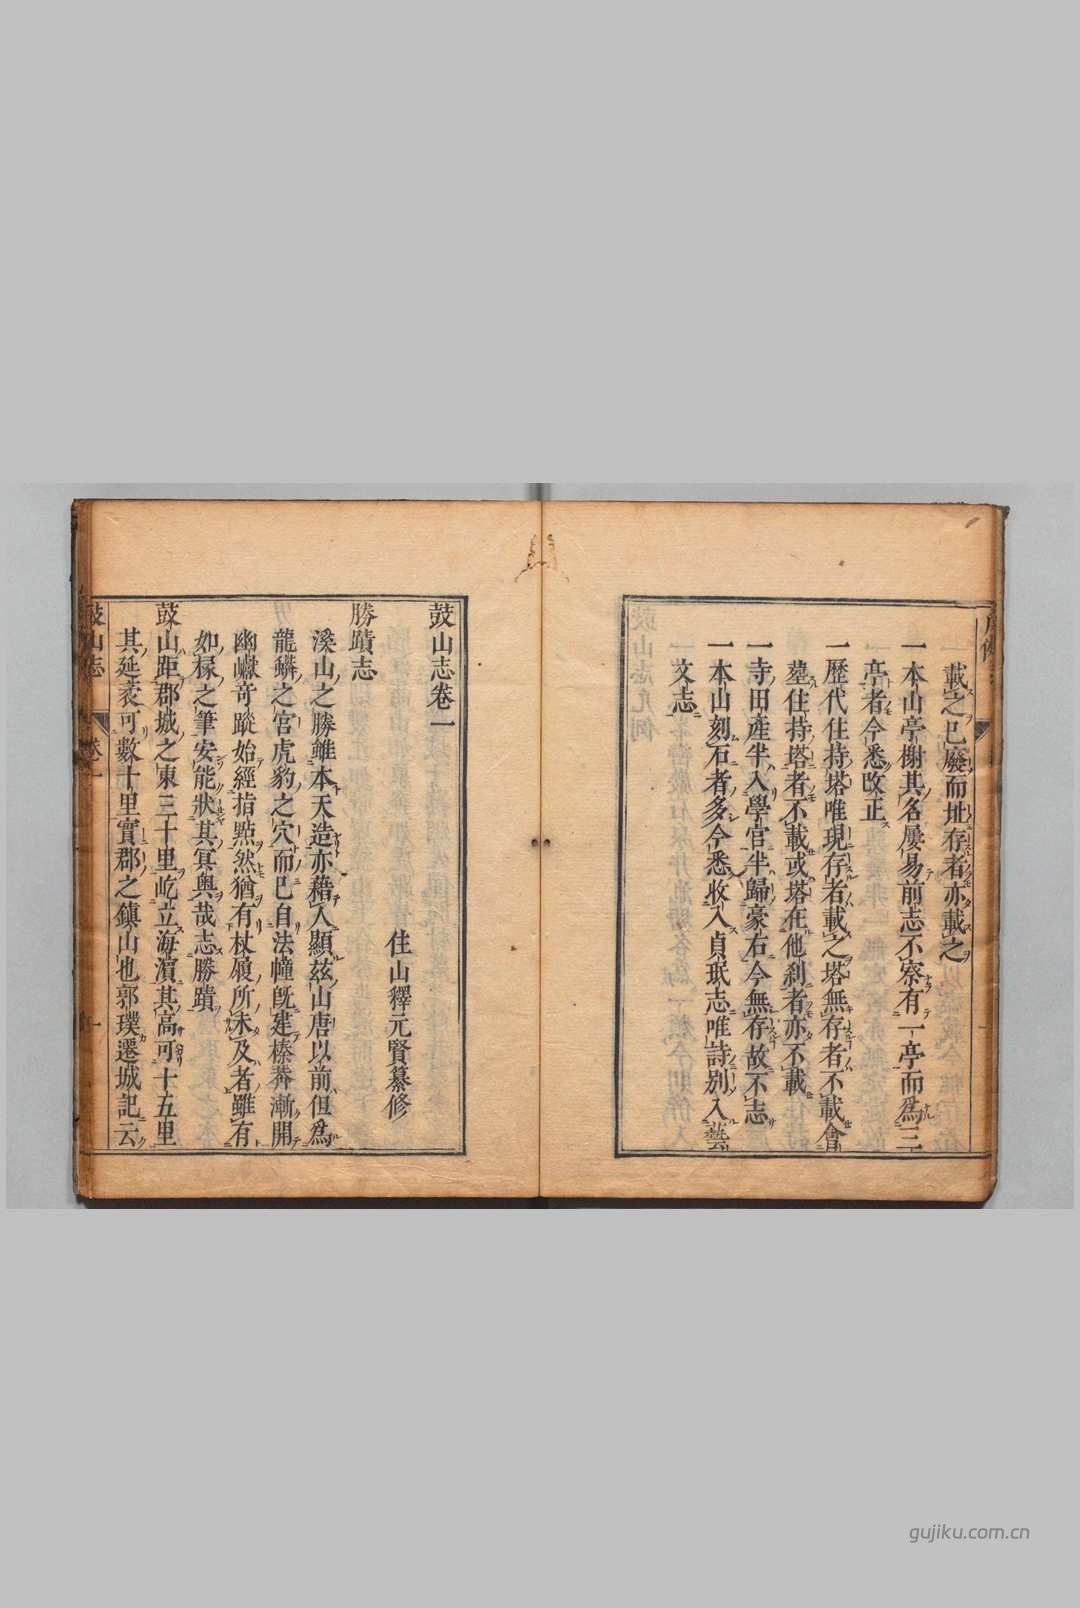 載之已廢而址存者亦載之
一本山亭榭其名屡易前志不察有一亭而爲三
亭者今悉改正
一歷代住持塔唯現存者載之塔無存者不載會
墓住持塔者不載或塔在他刹者亦不載
一寺田產半入學官半歸豪右今無存故不志
一本山刻石者多今悉收入貞珉志唯詩別入藝
文志
鼓山志卷一
住山釋元賢纂修
勝蹟志
溪山之勝雖本天造亦藉人顯茲山唐以前但爲
龍蟒之宮虎豹之穴而已自法幢旣建榛莽漸開
幽巘奇蹤始經指點然猶有杖屨所未及者雖有
如椽之筆安能狀其冥奥哉志勝蹟
鼓山距郡城之東三十里屹立海濵其高可十五里
其延袤可數十里實郡之鎮山也郭璞遷城記云
鼓山志
卷一
一
gujiku.com.cn